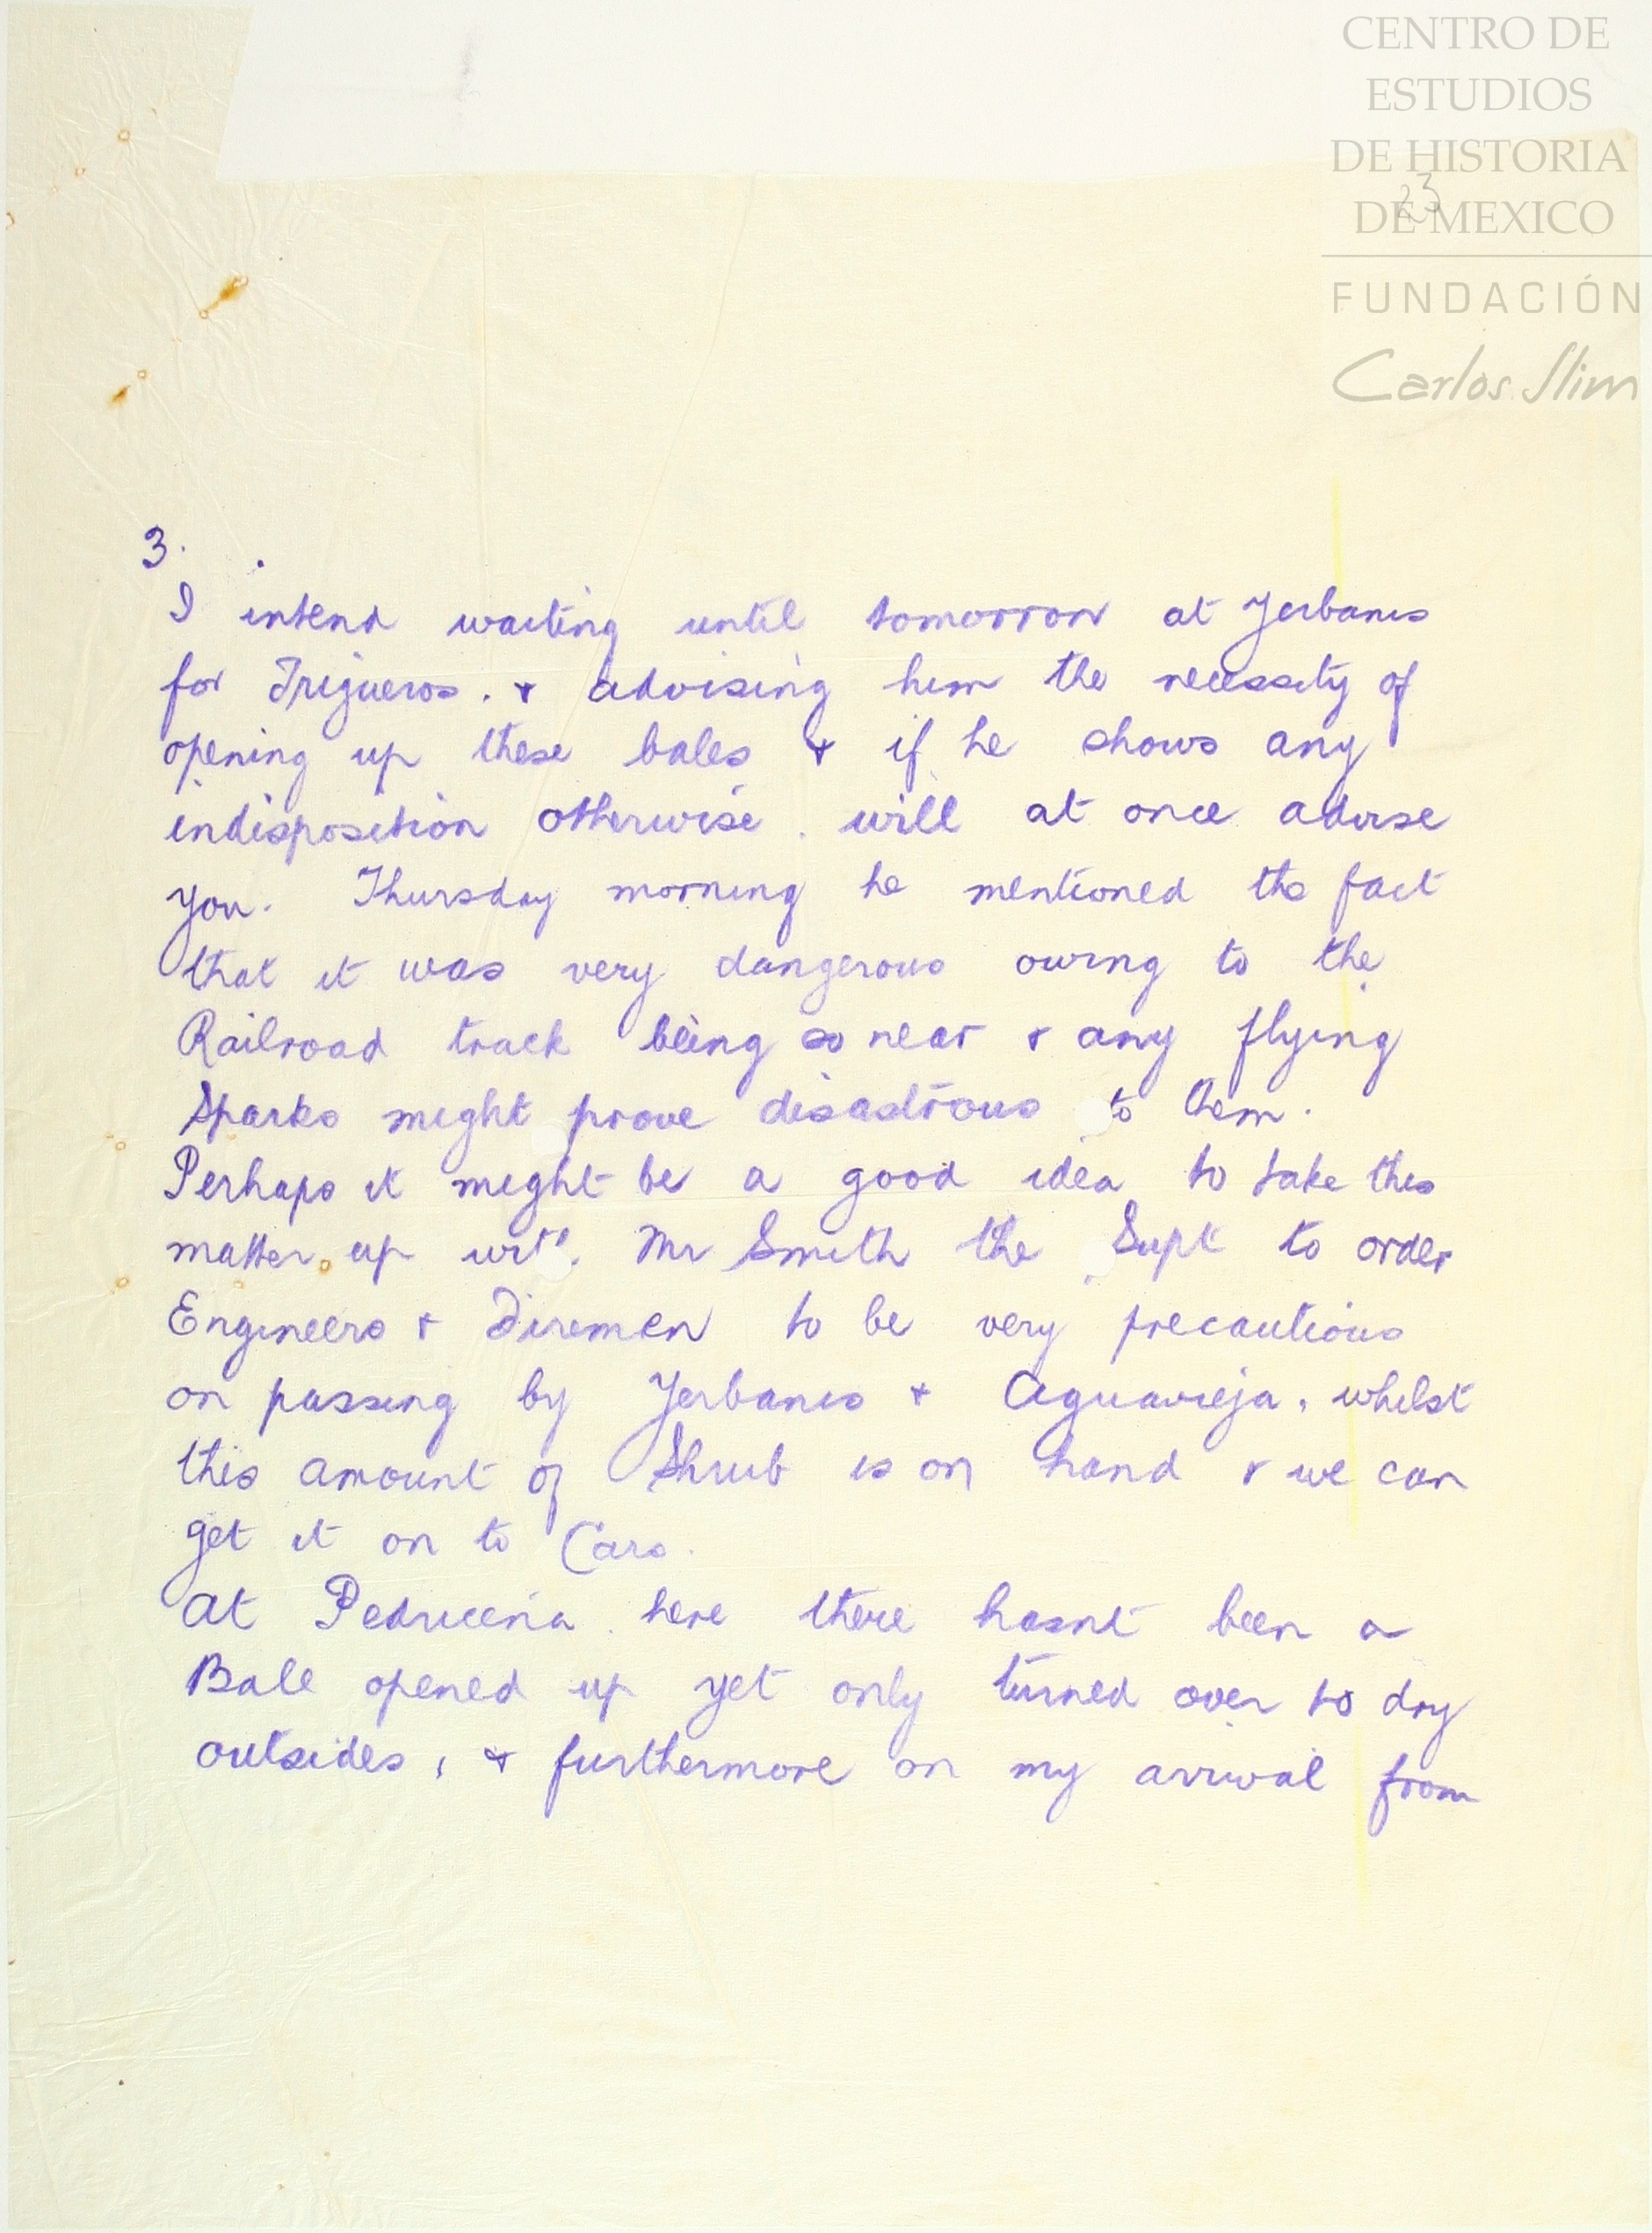 CENTRO DE
ESTUDIOS
DE HISTORIA
DE MEXICO
23
FUNDACIÓN
Carlos Slim
3.
I intend waiting until tomorrow at Yerbanis
for Trigueros. & advising him the necessity of
opening up these bales & if he shows any
indisposition otherwise. will at once advise
you. Thursday morning he mentioned the fact
that it was very dangerous owing to the
Railroad track being so near & any flying
Sparks might prove disastrous to them.
Perhaps it might be a good idea to take this
matter up with Mr Smith the Supt to order
Engineers & Firemen to be very precautious
on passing by Yerbanis & Aguavieja, whilst
this amount of Shrub is on hand & we can
get it on to Cars.
At Pedriceña here there hasnt been a
Bale opened up yet only turned over to dry
outsides, & furthermore on my arrival from